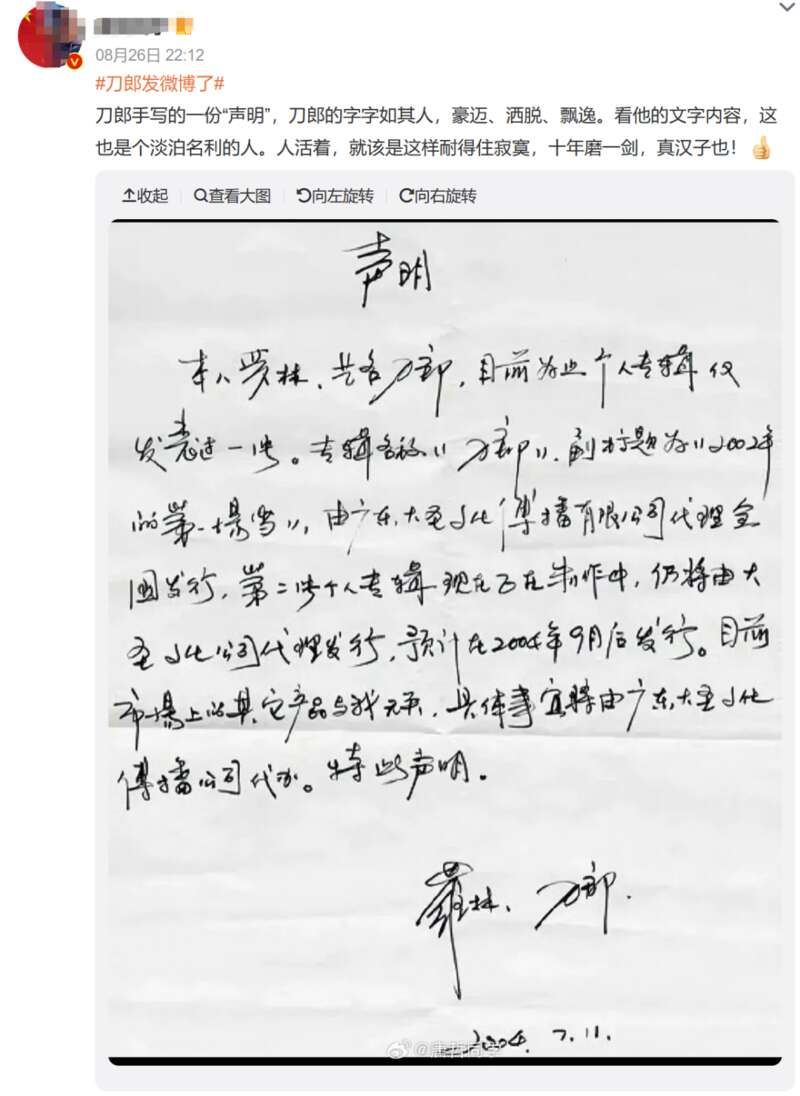 08月26日 22:12
#刀郎发微博了#
刀郎手写的一份“声明”，刀郎的字字如其人，豪迈、洒脱、飘逸。看他的文字内容，这
也是个淡泊名利的人。人活着，就该是这样耐得住寂寞，十年磨一剑，真汉子也！👍
收起 查看大图 向左旋转 向右旋转
声明
本人罗林、艺名刀郎，目前为止个人专辑仅
发表过一张。专辑名称《刀郎》，副标题为《2002年
的第一场雪》，由广东大圣文化傳播有限公司代理全
国发行，第二张个人专辑现在正在制作中，仍将由大
圣文化公司代理发行，预计在2004年9月后发行。目前
市场上的其它产品与我无关，具体事宜将由广东大圣文化
傳播公司代办。特此声明。
羅林、刀郎.
2004.7.11.